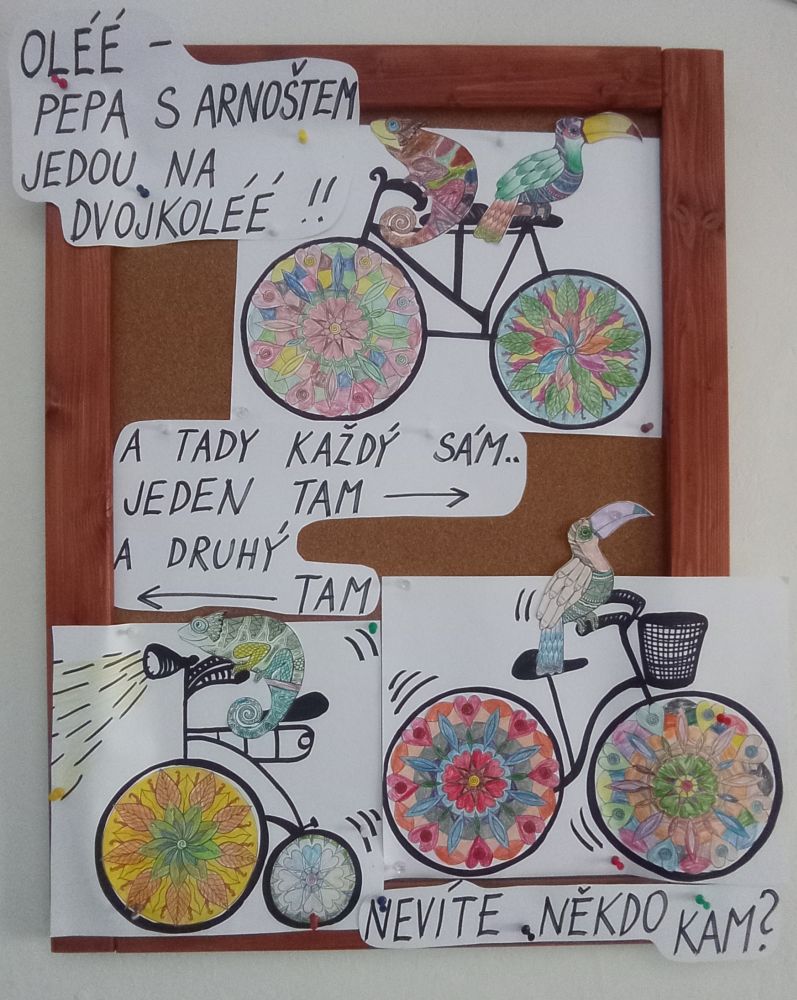 OLÉÉ -
PEPA S ARNOŠTEM
JEDOU NA
DVOJKOLÉÉ !!
A TADY KAŽDÝ SÁM..
JEDEN TAM →
A DRUHÝ
← TAM
NEVÍTE NĚKDO KAM?